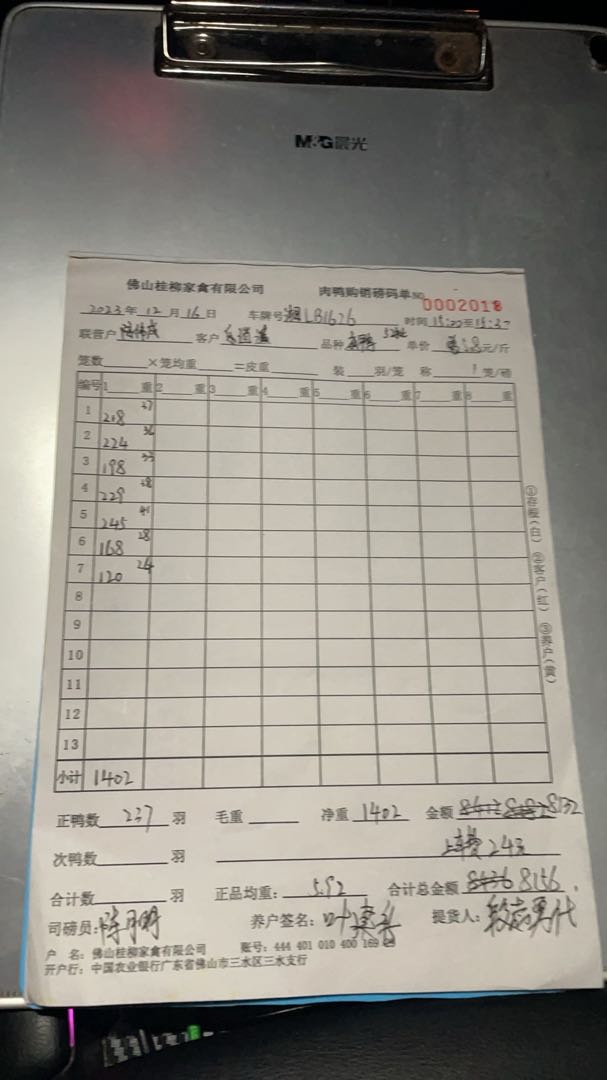 M&G晨光
佛山桂柳家禽有限公司 肉鸭购销磅码单 NO 0002018
2023年12月16日 车牌号 湘LB1626 时间 15:00至15:30
联营户 客户 品种 单价 5.8元/斤
笼数 ×笼均重 =皮重 装 羽/笼 称 1 笼/磅
编号 1 重 2 重 3 重 4 重 5 重 6 重 7 重 8 重
1 218 37
2 224 36
3 198 33
4 229 38
5 245 41
6 168 28
7 120 24
8
9
10
11
12
13
小计 1402
①存根(白) ②客户(红) ③养户(黄)
正鸭数 237 羽 毛重 净重 1402 金额 8132
次鸭数 羽 上车费24元
合计数 羽 正品均重: 5.92 合计总金额 8156
司磅员: 养户签名: 提货人:
户 名: 佛山桂柳家禽有限公司 账号: 444 401 010 400 169
开户行: 中国农业银行广东省佛山市三水区三水支行